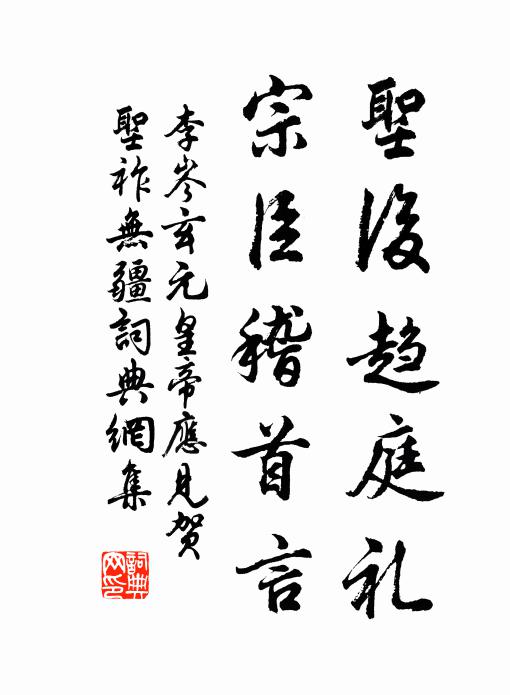 聖後趨庭礼
宗臣稽首言
李岑玄元皇帝應見賀
聖祚無疆詞典網集
詞典
网印